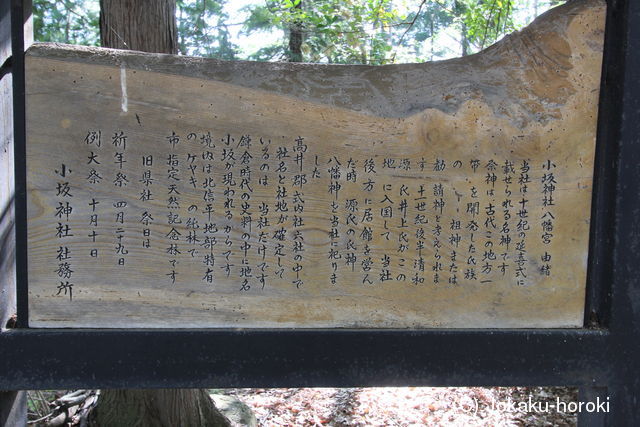 小坂神社八幡宮 由緒
当社は十世紀の延喜式に
載せられる名神です
祭神は古代この地方一
帯を開発した氏族
の 祖神または
勧請神と考えられま
す 十一世紀後半清和
源氏井上氏がこの
地に入国して 当社
後方に居館を営ん
だ時 源氏の氏神
八幡神も当社に祀りま
した
高井郡式内社六社の中で
社名と社地が確定して
いるのは 当社だけです
鎌倉時代の史料の中に地名
小坂が現われるからです
境内は北信平地部特有
の ケヤキ の純林で
市指定天然記念林です
旧県社 祭日は
祈年祭 四月二十九日
例大祭 十月十日
小坂神社社務所
(C) Jokaku-horoki